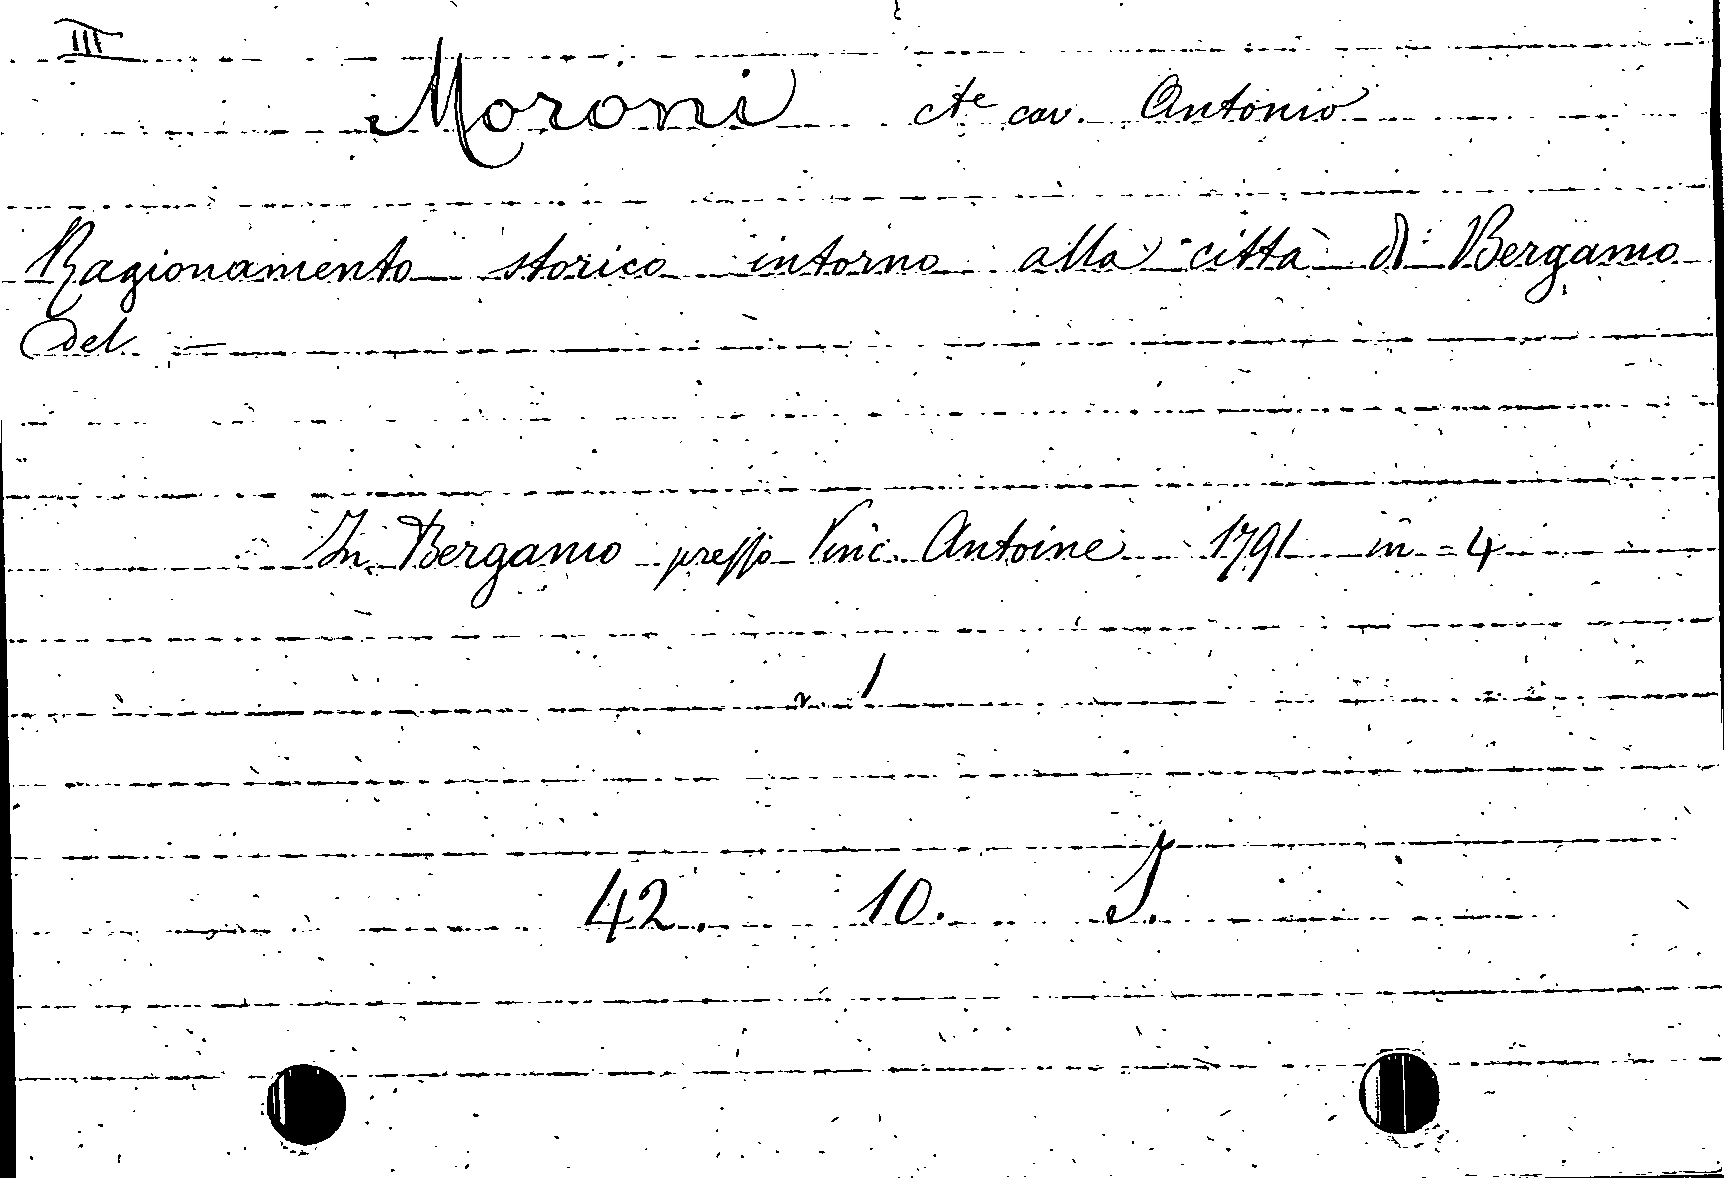 III
Moroni cte cav. Antonio
Ragionamento storico intorno alla città di Bergamo
del —
In Bergamo presso Vinc. Antoine 1791 in-4
42. 10. J.